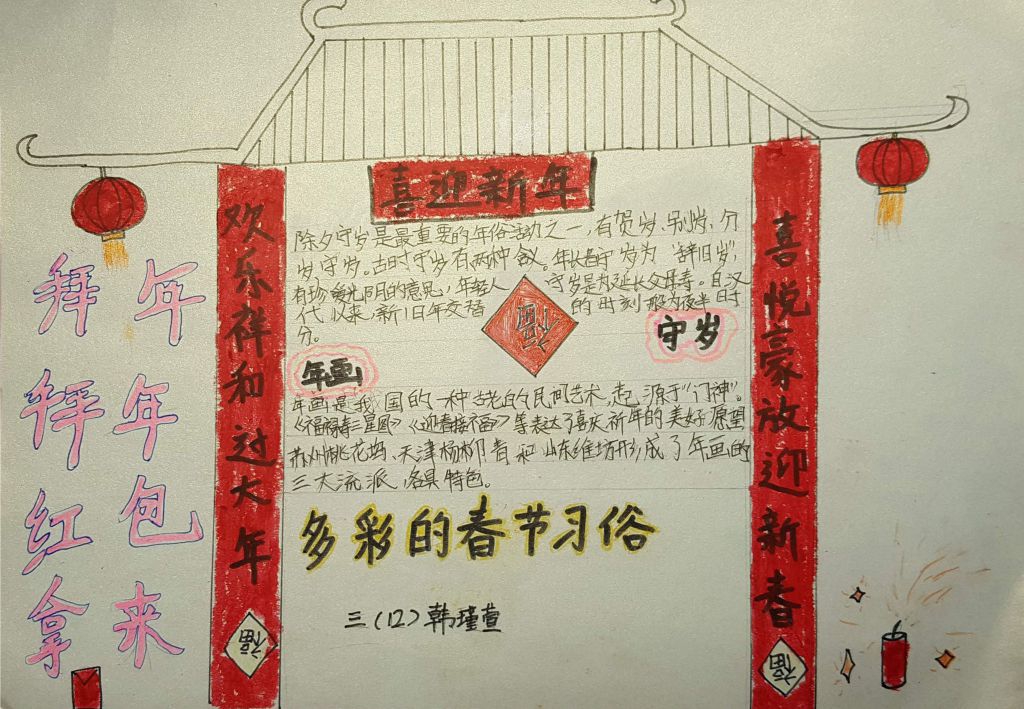 喜迎新年
欢乐祥和过大年
喜悦豪放迎新春
拜年
拜年
红包
拿来
除夕守岁是最重要的年俗活动之一,有贺岁、别岁、分
岁、守岁。古时守岁有两种含义。年长者守岁为“辞旧岁”,
有珍爱光阴的意思,年轻人守岁是为延长父母寿。自汉
代以来,新旧年交替的时刻一般为夜半时
分。
福
守岁
年画
年画是我国的一种古老的民间艺术,起源于“门神”。
《福禄寿三星图》《迎春接福》等表达了喜庆祈年的美好愿望
苏州桃花坞、天津杨柳青和山东维坊形成了年画的
三大流派,各具特色。
多彩的春节习俗
三(12)韩瑾萱
福
福